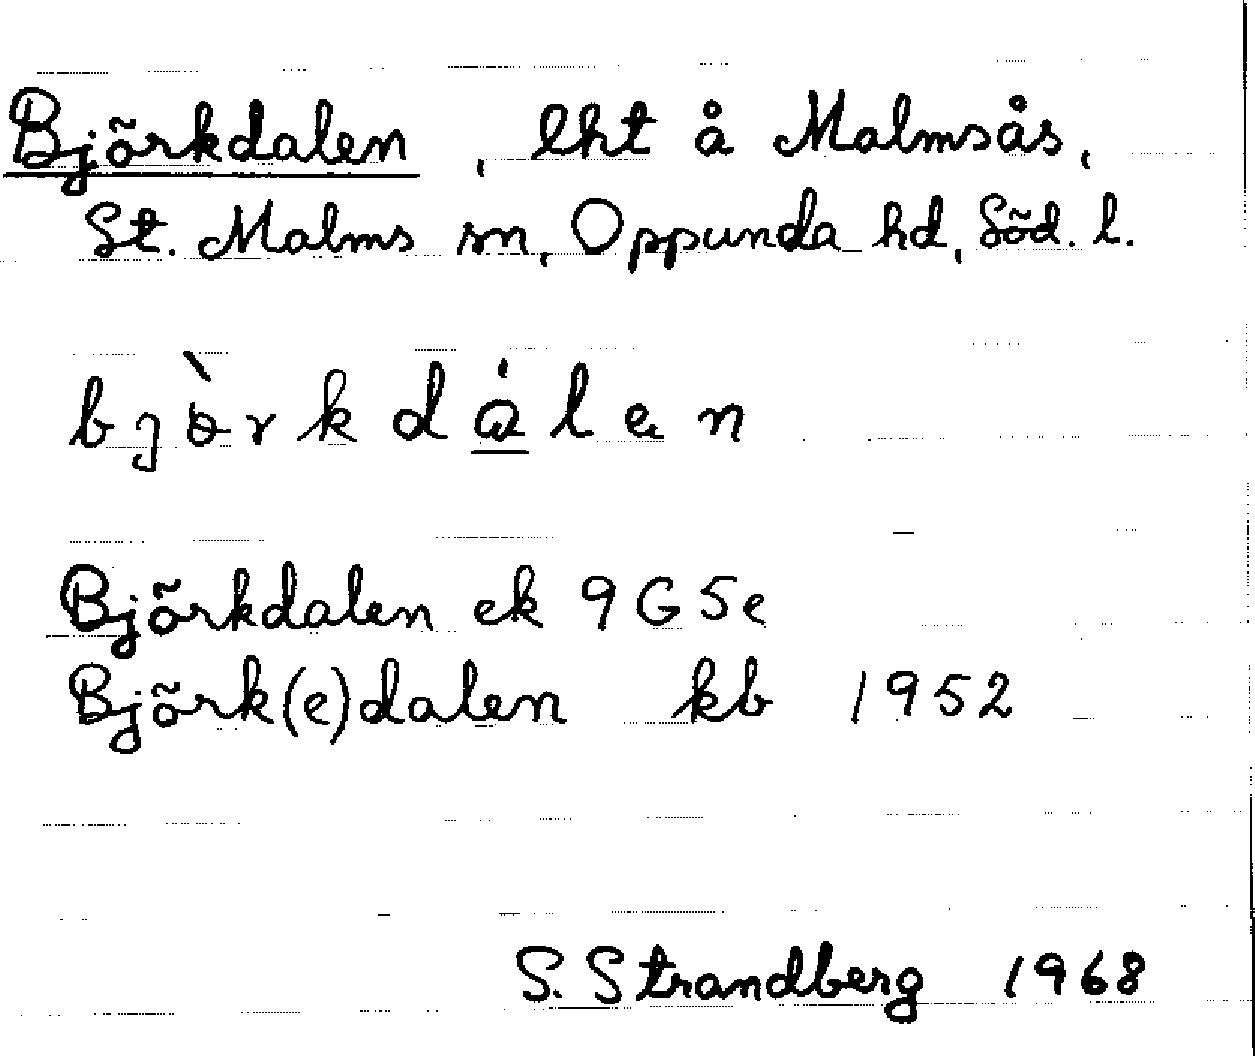 Björkdalen, lht å Malmsås,
St. Malms sn, Oppunda hd, Söd. l.
bjö̀rkdá̱len
Björkdalen ek 9G5e
Björk(e)dalen kb 1952
S. Strandberg 1968